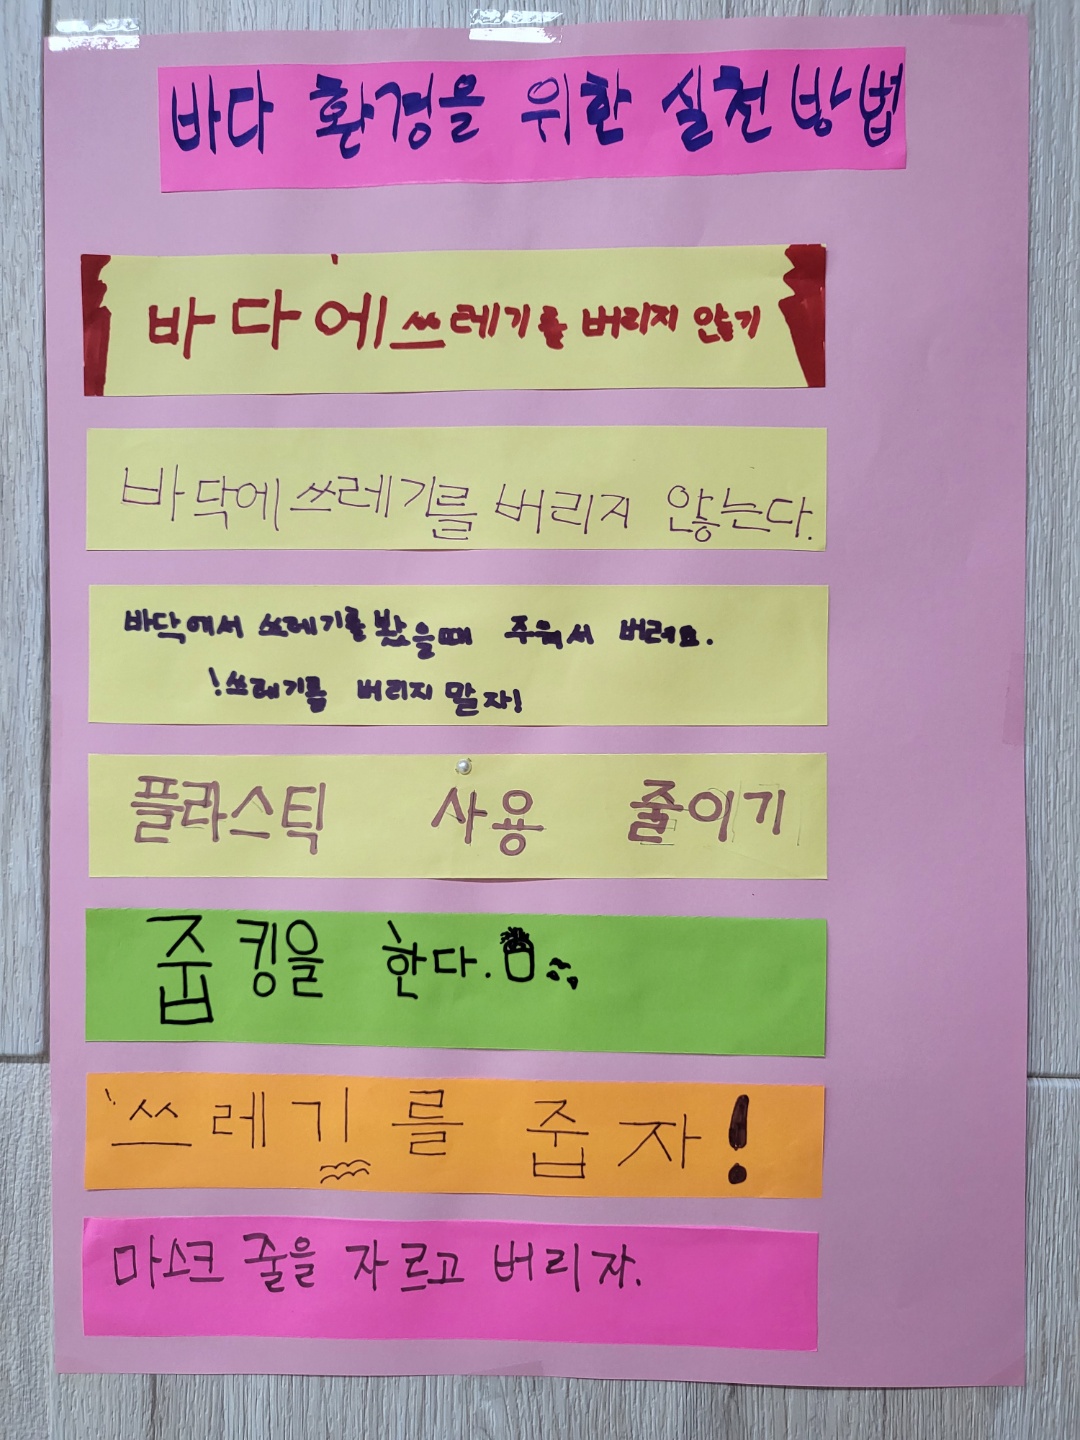 바다 환경을 위한 실천 방법
바다에 쓰레기를 버리지 않기
바닥에 쓰레기를 버리지 않는다.
바닥에서 쓰레기를 봤을때 주워서 버려요.
!쓰레기를 버리지 말자!
플라스틱 사용 줄이기
줍킹을 한다.
쓰레기를 줍자!
마스크 줄을 자르고 버리자.